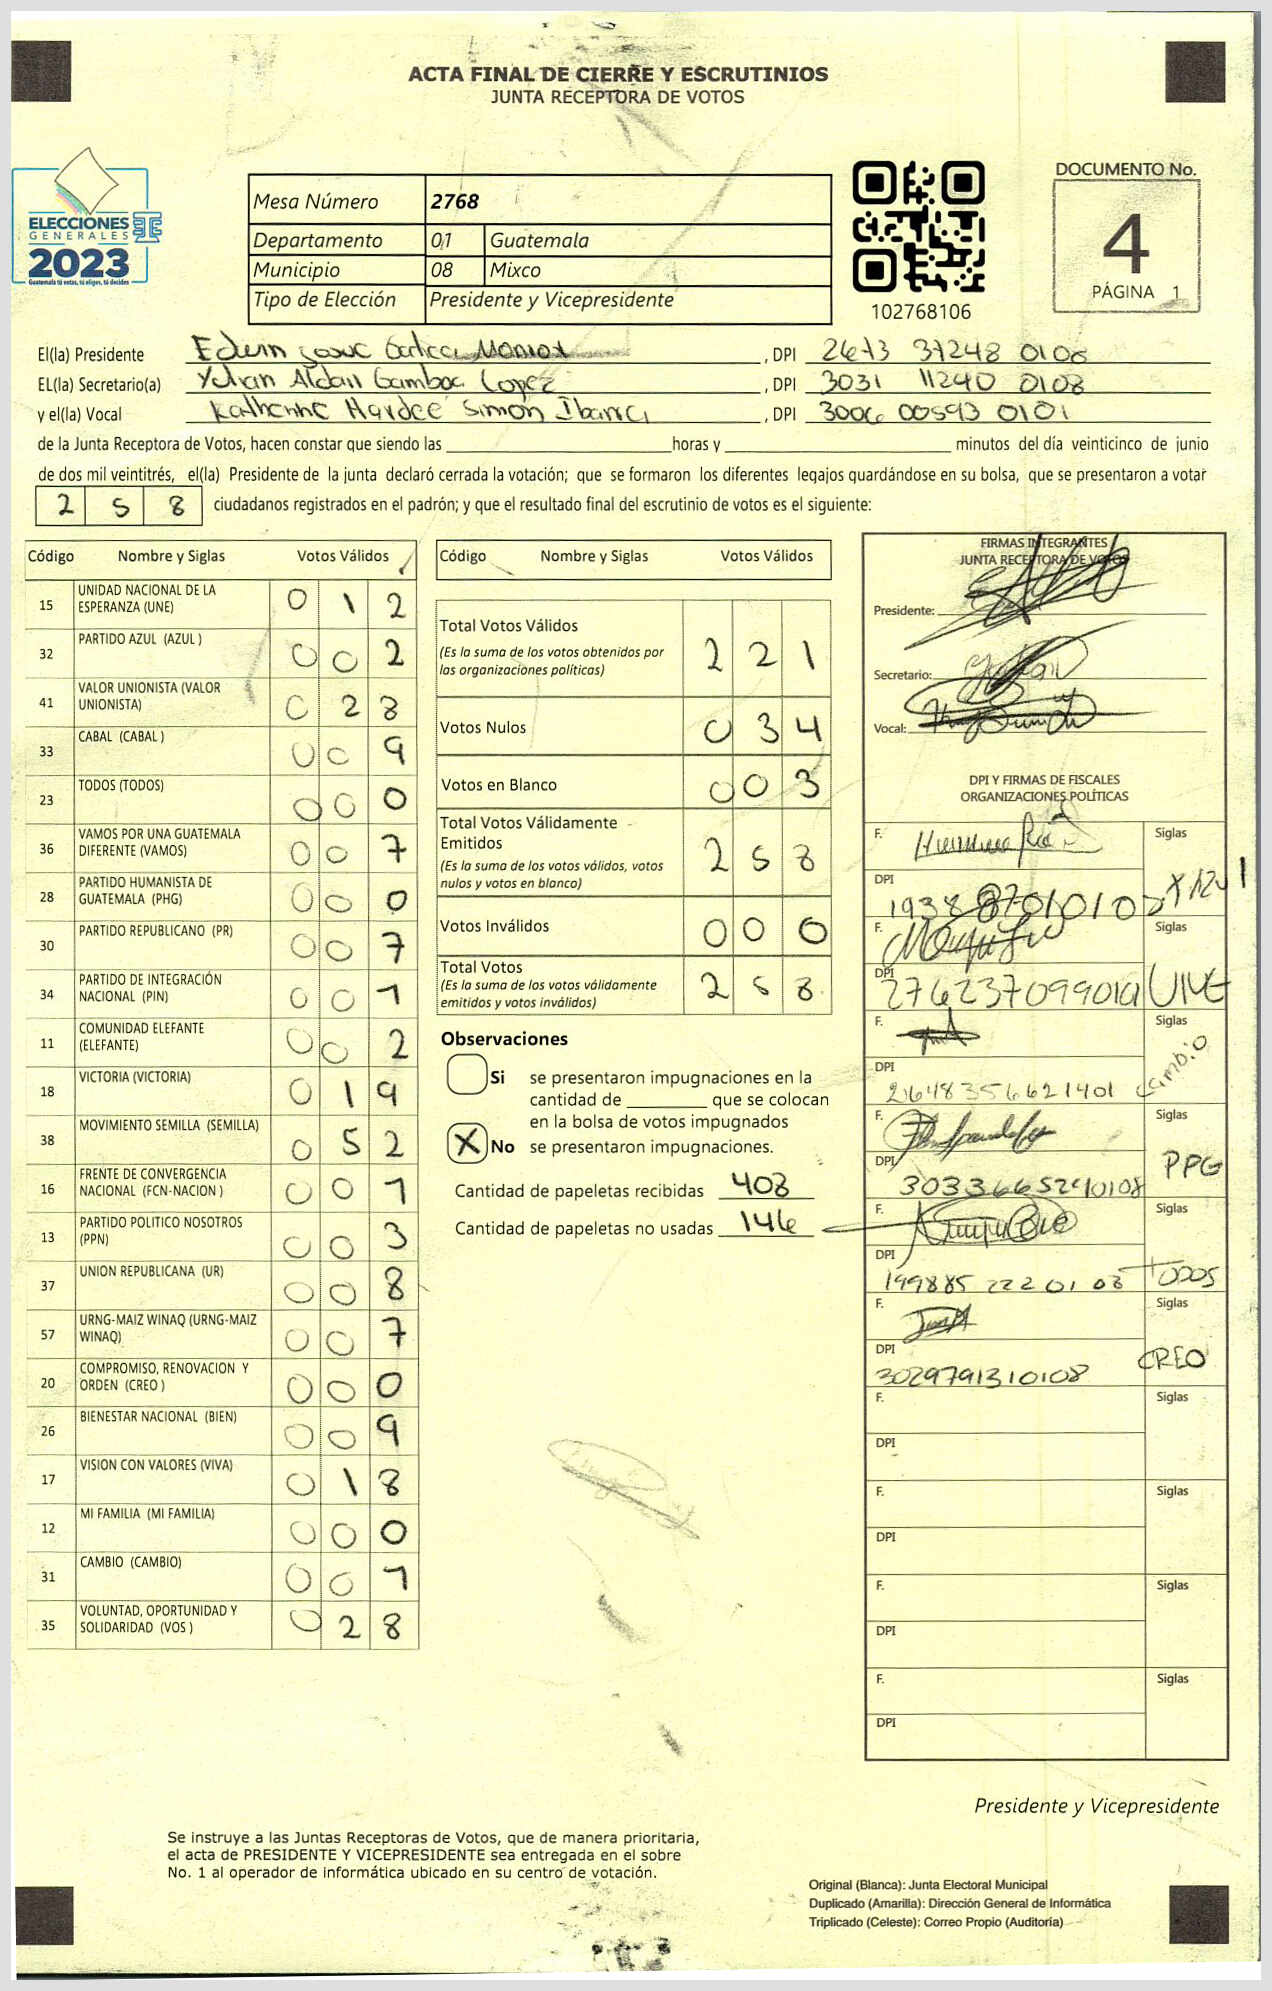 ACTA FINAL DE CIERRE Y ESCRUTINIOS
JUNTA RECEPTORA DE VOTOS
ELECCIONES
GENERALES
2023
Guatemala tú votas, tú eliges, tú decides
Mesa Número 2768
Departamento 01 Guatemala
Municipio 08 Mixco
Tipo de Elección Presidente y Vicepresidente
102768106
DOCUMENTO No.
4
PÁGINA 1
El(la) Presidente Edwin , DPI 2673 37248 0108
EL(la) Secretario(a) Aldair Gamboa Lopez , DPI 3031 11240 0108
y el(la) Vocal Katherine Haydeé Simon Ibarra , DPI 3006 00593 0101
de la Junta Receptora de Votos, hacen constar que siendo las horas y minutos del día veinticinco de junio
de dos mil veintitrés, el(la) Presidente de la junta declaró cerrada la votación; que se formaron los diferentes legajos guardándose en su bolsa, que se presentaron a votar
2 5 8 ciudadanos registrados en el padrón; y que el resultado final del escrutinio de votos es el siguiente:
Código Nombre y Siglas Votos Válidos
15 UNIDAD NACIONAL DE LA
ESPERANZA (UNE) 0 1 2
32 PARTIDO AZUL (AZUL ) 0 0 2
41 VALOR UNIONISTA (VALOR
UNIONISTA) 0 2 8
33 CABAL (CABAL ) 0 0 9
23 TODOS (TODOS) 0 0 0
36 VAMOS POR UNA GUATEMALA
DIFERENTE (VAMOS) 0 0 7
28 PARTIDO HUMANISTA DE
GUATEMALA (PHG) 0 0 0
30 PARTIDO REPUBLICANO (PR) 0 0 7
34 PARTIDO DE INTEGRACIÓN
NACIONAL (PIN) 0 0 1
11 COMUNIDAD ELEFANTE
(ELEFANTE) 0 0 2
18 VICTORIA (VICTORIA) 0 1 9
38 MOVIMIENTO SEMILLA (SEMILLA) 0 5 2
16 FRENTE DE CONVERGENCIA
NACIONAL (FCN-NACION ) 0 0 1
13 PARTIDO POLITICO NOSOTROS
(PPN) 0 0 3
37 UNION REPUBLICANA (UR) 0 0 8
57 URNG-MAIZ WINAQ (URNG-MAIZ
WINAQ) 0 0 7
20 COMPROMISO, RENOVACION Y
ORDEN (CREO ) 0 0 0
26 BIENESTAR NACIONAL (BIEN) 0 0 9
17 VISION CON VALORES (VIVA) 0 1 8
12 MI FAMILIA (MI FAMILIA) 0 0 0
31 CAMBIO (CAMBIO) 0 0 1
35 VOLUNTAD, OPORTUNIDAD Y
SOLIDARIDAD (VOS ) 0 2 8
Código Nombre y Siglas Votos Válidos
Total Votos Válidos
(Es la suma de los votos obtenidos por
las organizaciones políticas) 2 2 1
Votos Nulos 0 3 4
Votos en Blanco 0 0 3
Total Votos Válidamente
Emitidos
(Es la suma de los votos válidos, votos
nulos y votos en blanco) 2 5 8
Votos Inválidos 0 0 0
Total Votos
(Es la suma de los votos válidamente
emitidos y votos inválidos) 2 5 8
Observaciones
Si se presentaron impugnaciones en la
cantidad de que se colocan
en la bolsa de votos impugnados
X No se presentaron impugnaciones.
Cantidad de papeletas recibidas 403
Cantidad de papeletas no usadas 146
FIRMAS INTEGRANTES
JUNTA RECEPTORA DE VOTOS
Presidente:
Secretario:
Vocal:
DPI Y FIRMAS DE FISCALES
ORGANIZACIONES POLÍTICAS
F. Siglas
DPI
F. Siglas
DPI 2762370990101 UNE
F. Siglas
DPI 2648356621401 Cambio
F. Siglas
DPI 30336665240108 PPG
F. Siglas
DPI 199885 222 01 08 TODOS
F. Siglas
DPI 3029791310108 CREO
F. Siglas
DPI
F. Siglas
DPI
F. Siglas
DPI
F. Siglas
DPI
Presidente y Vicepresidente
Se instruye a las Juntas Receptoras de Votos, que de manera prioritaria,
el acta de PRESIDENTE Y VICEPRESIDENTE sea entregada en el sobre
No. 1 al operador de informática ubicado en su centro de votación.
Original (Blanca): Junta Electoral Municipal
Duplicado (Amarilla): Dirección General de Informática
Triplicado (Celeste): Correo Propio (Auditoría)